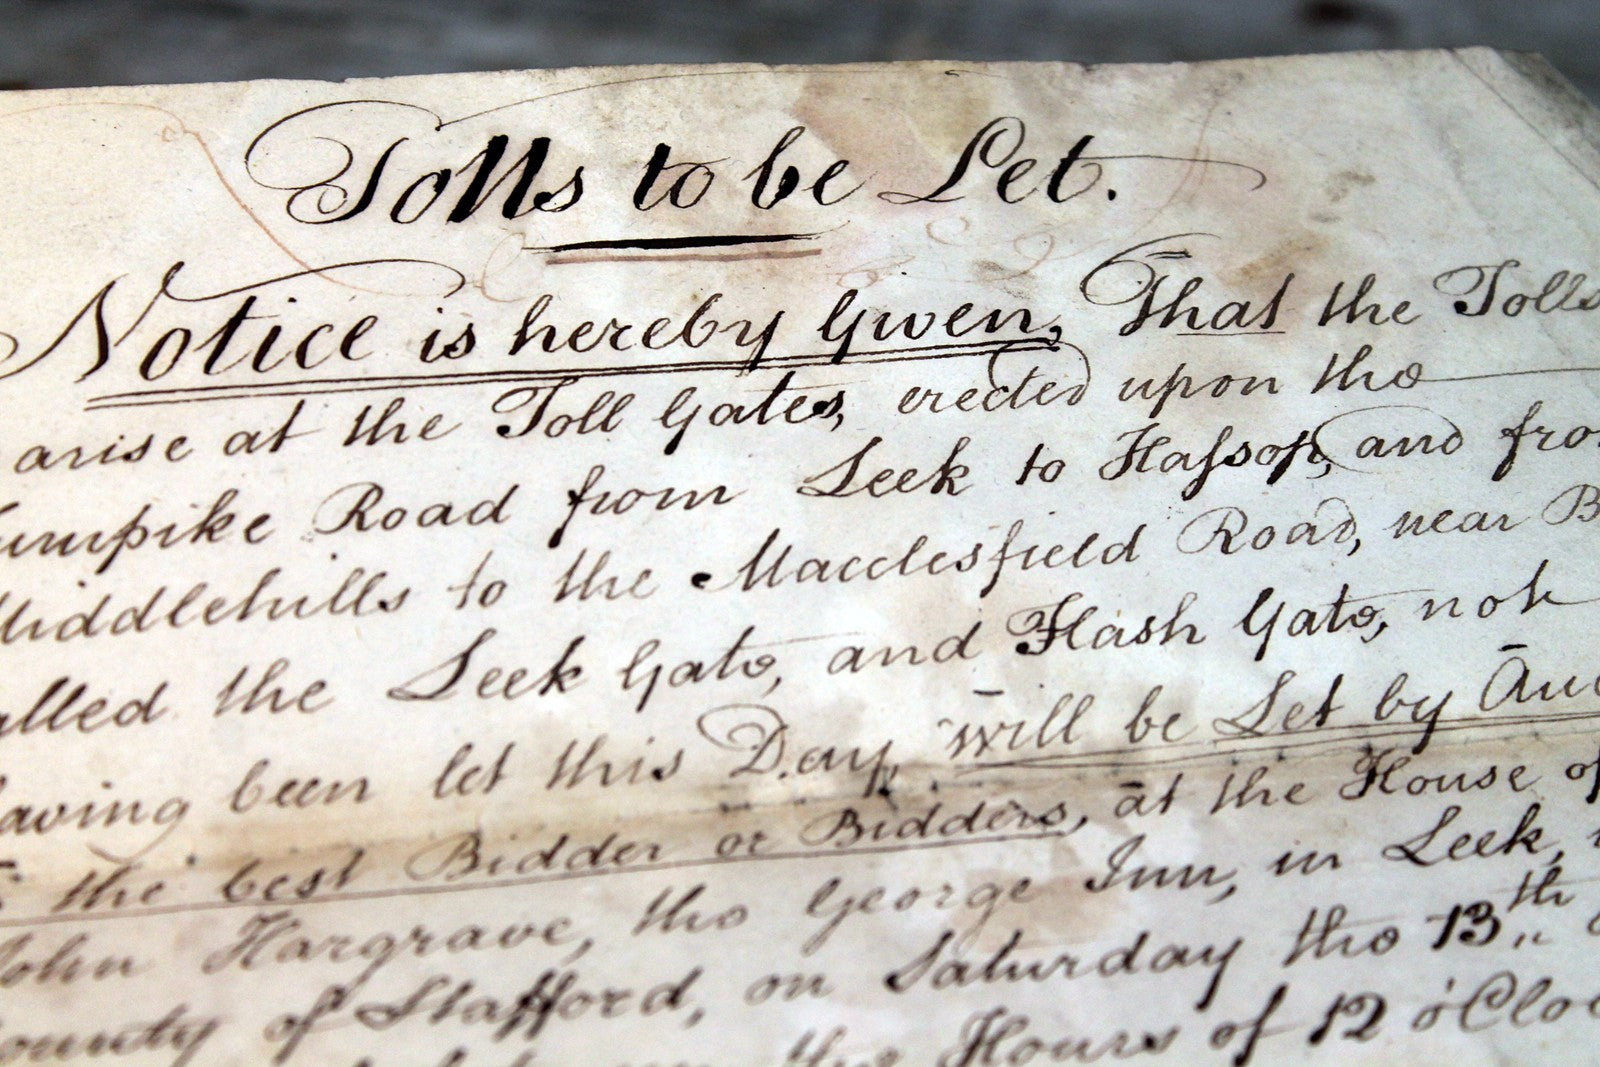 Tolls to be Let.
Notice is hereby Given, That the Tolls
arise at the Toll Gates, erected upon the
Turnpike Road from Leek to Haſsop, and from
Middlehills to the Macclesfield Road, near B
alled the Leek Gate, and Flash Gate, not
aving been let this Day, will be Let by Auc
the best Bidder or Bidders, at the House of
John Hargrave, the George Inn, in Leek,
ounty of Stafford, on Saturday the 13th
the Hours of 12 o'Cloc